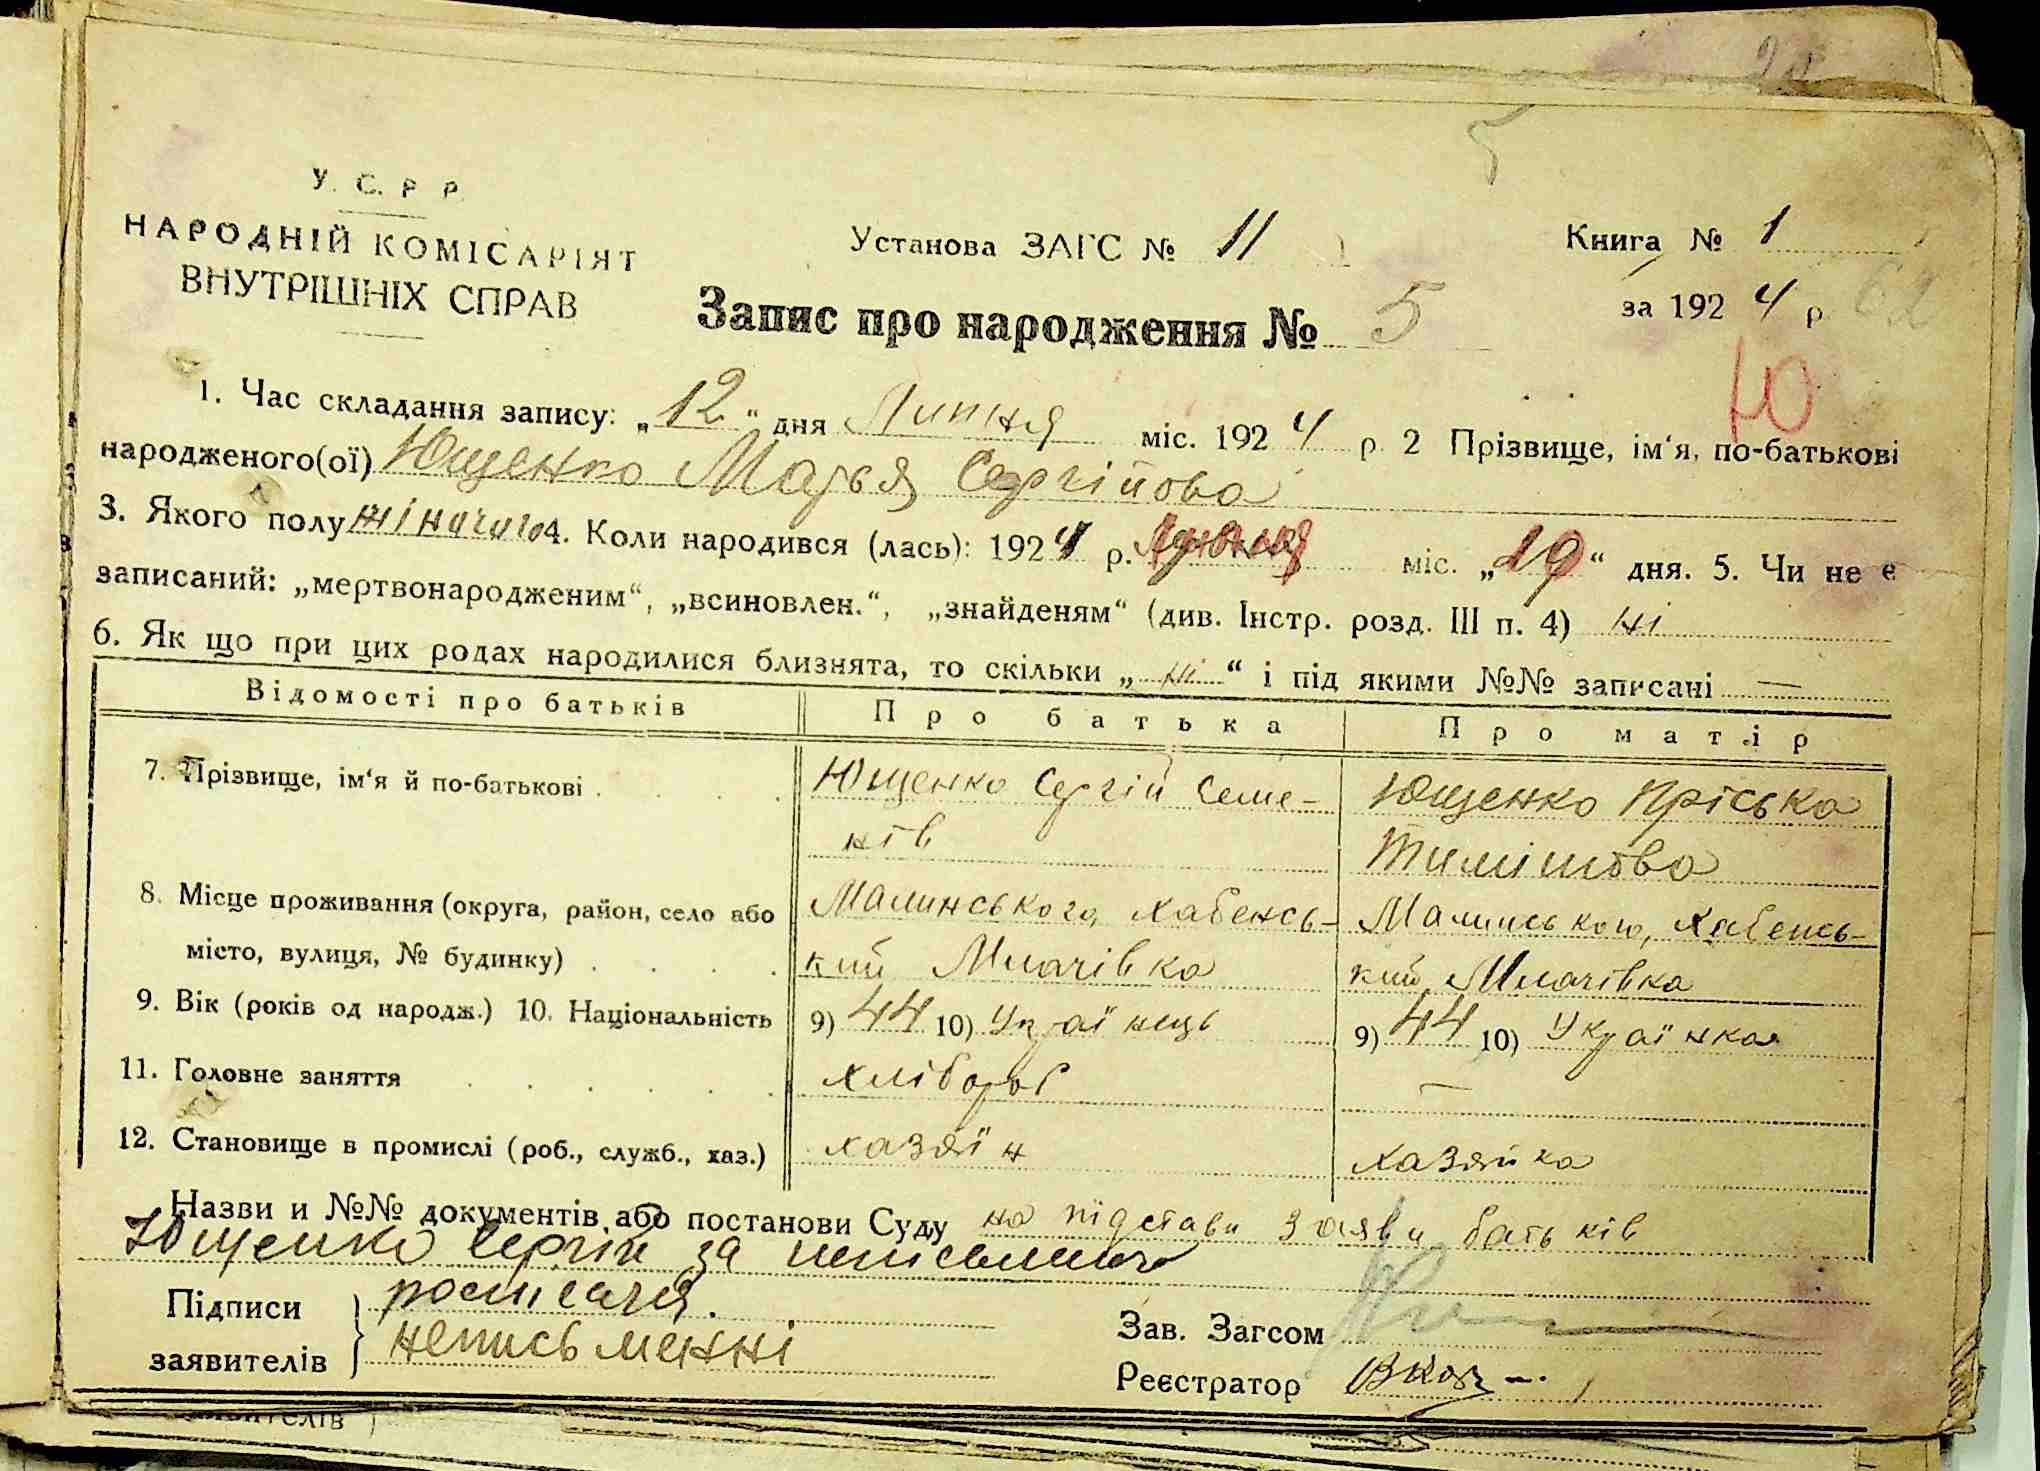 У. С. Р Р.
НАРОДНІЙ КОМІСАРІЯТ
ВНУТРІШНІХ СПРАВ
Установа ЗАГС № 11
Книга № 1
за 1924 р.
Запис про народження № 5
Ю
1. Час складання запису: „12“ дня Липня міс. 1924 р. 2 Прізвище, ім‘я, по-батькові
народженого(ої) Ющенко Марья Сергійова
3. Якого полу жіночого 4. Коли народився (лась): 1924 р. міс. „19“ дня. 5. Чи не є
записаний: „мертвонародженим“, „всиновлен.“, „знайденям“ (див. Інстр. розд. III п. 4) ні
6. Як що при цих родах народилися близнята, то скільки „ні“ і під якими №№ записані —
Відомості про батьків Про батька Про матір
7. Прізвище, ім‘я й по-батькові . Ющенко Сергій Семе- Ющенко Пріська
нів Тимішова
8. Місце проживання (округа, район, село або Малинського, Хабенсь- Малинського, Хабенсь-
місто, вулиця, № будинку) . кий Мничівка кий Мничівка
9. Вік (років од народж.) 10. Національність 9) 44 10) Українець 9) 44 10) Українка
11. Головне заняття хлібороб —
12. Становище в промислі (роб., служб., хаз.) хазяїн хазяйка
Назви и №№ документів або постанови Суду на підстави заяви батьків
Ющенко Сергій за
Підписи
неписьменні
заявителів
Зав. Загсом
Реєстратор